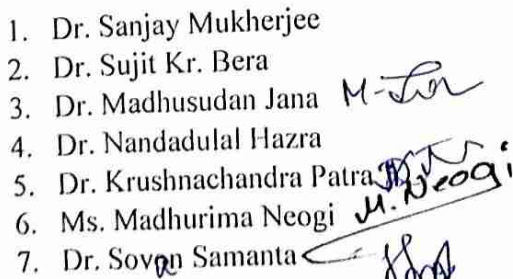 1. Dr. Sanjay Mukherjee
2. Dr. Sujit Kr. Bera
3. Dr. Madhusudan Jana M-
4. Dr. Nandadulal Hazra
5. Dr. Krushnachandra Patra
6. Ms. Madhurima Neogi M. Neogi
7. Dr. Sovan Samanta